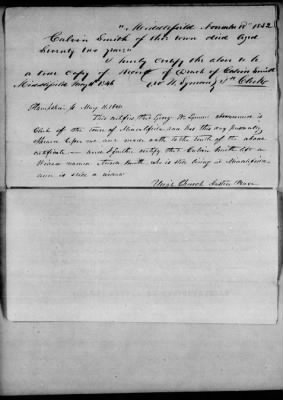 "Middlefield November 17th 1842
Calvin Smith of this town died aged
Seventy two years"
I hereby certify the above to be
a true copy of Record of Death of Calvin Smith
Middlefield May 11 1846 Geo W Lyman Tn Clerk
Hampshire ss May 11, 1846
This certifies that George W Lyman above named is
Clerk of the town of Middlefield and has this day personally
before me and made oath to the truth of the above
certificate — and I further certify that Calvin Smith left a
widow named Smith, who is still living in Middlefield
and is still a widow
Church Justice Peace